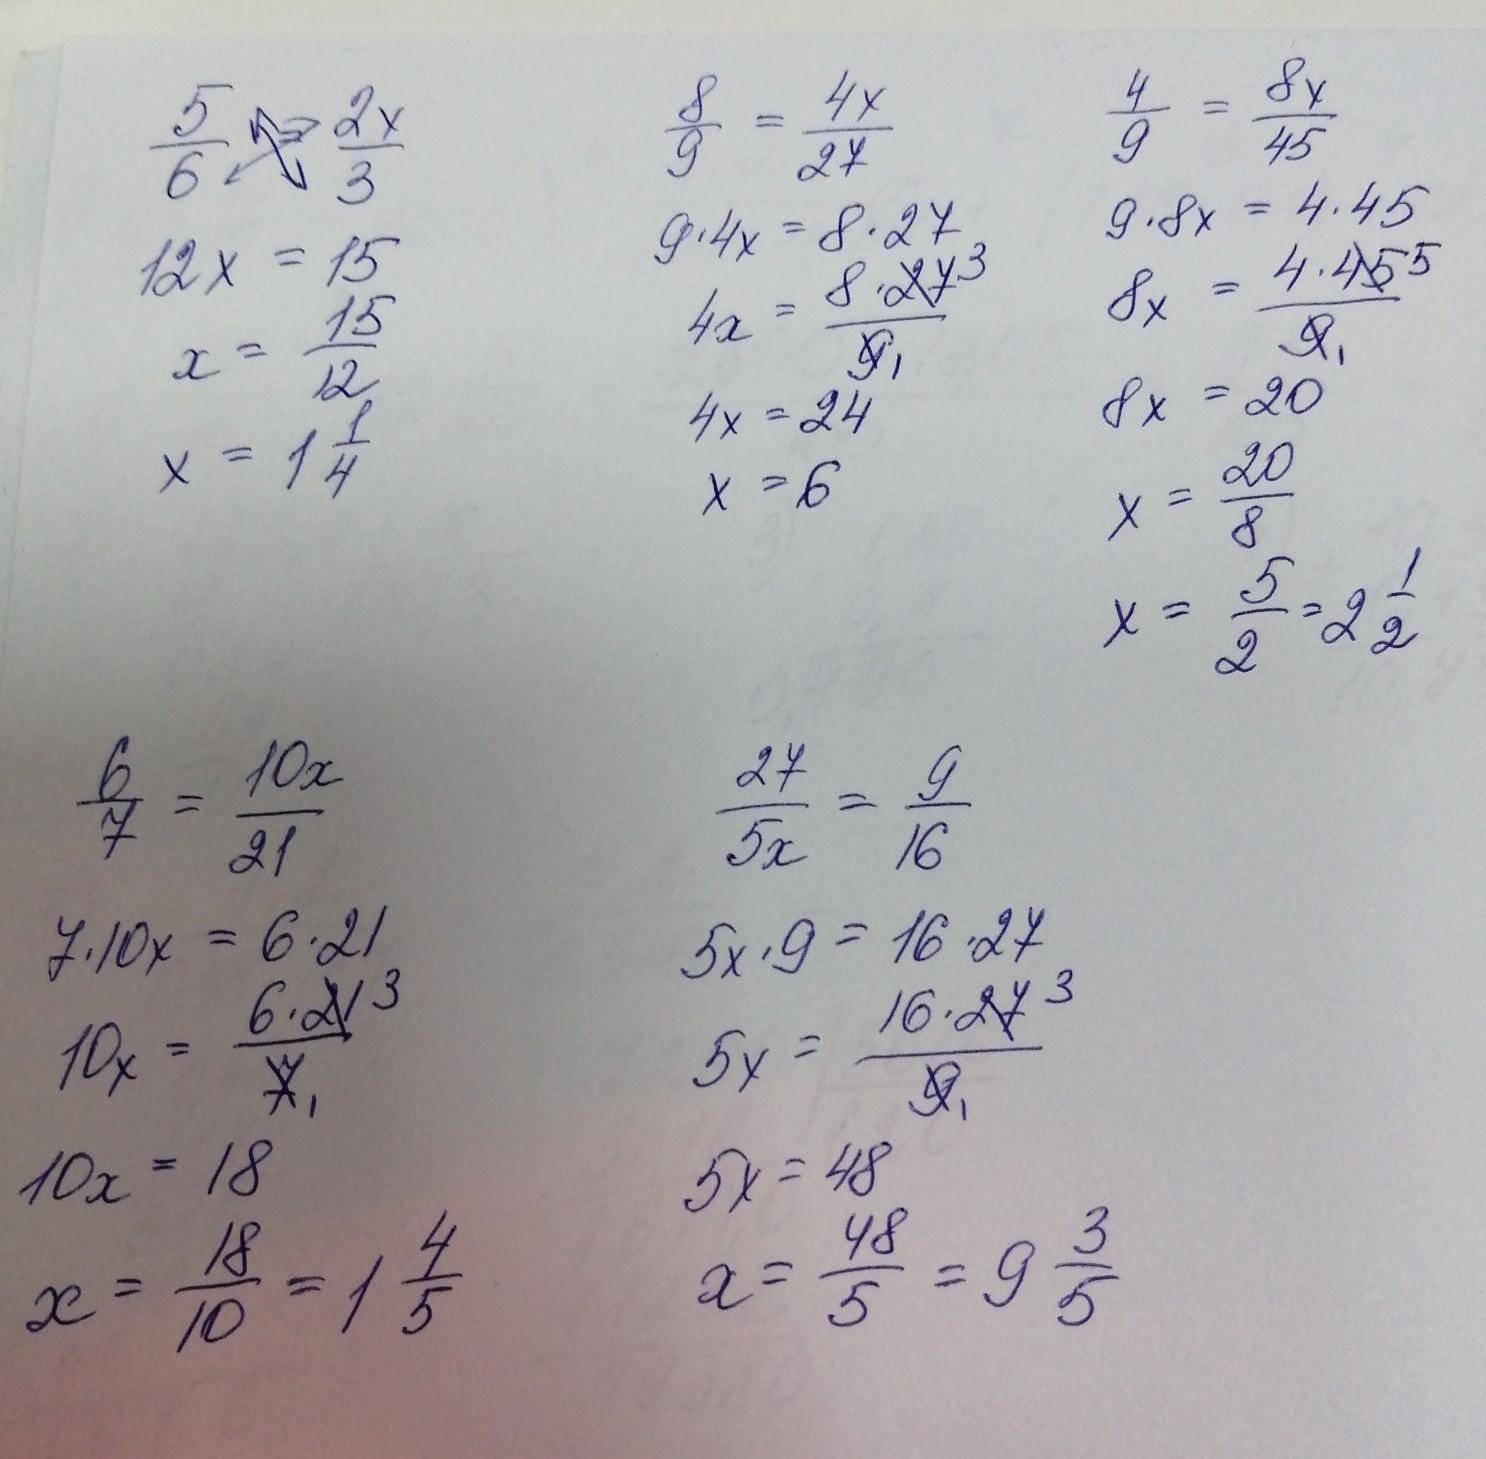 5/6 = 2x/3
12x = 15
x = 15/12
x = 1 1/4
8/9 = 4x/27
9·4x = 8·27
4x = 8·27 3/9 1
4x = 24
x = 6
4/9 = 8x/45
9·8x = 4·45
8x = 4·45 5/9 1
8x = 20
x = 20/8
x = 5/2 = 2 1/2
6/7 = 10x/21
7·10x = 6·21
10x = 6·21 3/7 1
10x = 18
x = 18/10 = 1 4/5
27/5x = 9/16
5x·9 = 16·27
5x = 16·27 3/9 1
5x = 48
x = 48/5 = 9 3/5